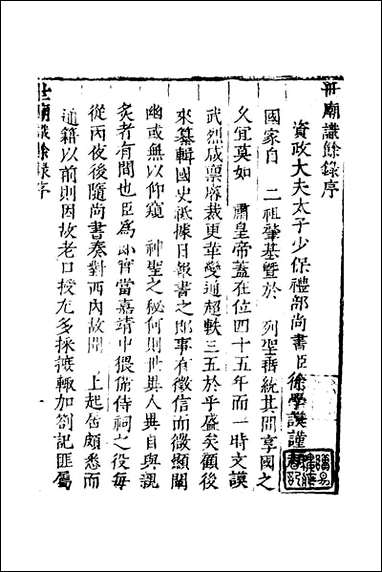 世廟識餘錄序
資政大夫太子少保禮部尚書臣徐學謨謹
國家自 二祖肇基暨於 列聖垂統其間享國之
久宜莫如 肅皇帝蓋在位四十五年而一時文謨
武烈咸稟廟裁更革變通超軼三五於乎盛矣顧後
來纂輯國史祗據日報書之即事有徵信而微顯闡
幽或無以仰窺 神聖之秘何則世與人異目與親
炙者有間也臣為郎官當嘉靖中猥備侍祠之役每
從丙夜後隨尚書奏對西內故聞 上起居頗悉而
通籍以前則因故老口授尤多採摭輒加劄記匪屬
世廟識餘錄序
一